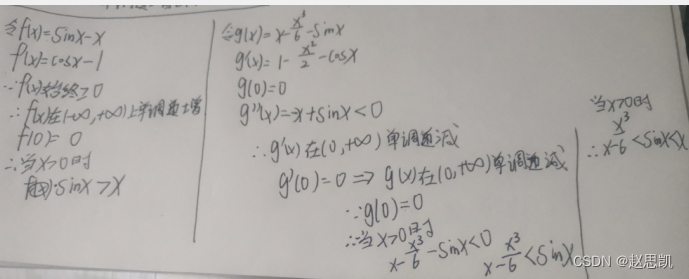 令f(x)=sinx-x
f'(x)=cosx-1
∵f'(x)始终≥0
∴f(x)在(-∞,+∞)上单调递增
f(0)=0
∴当x>0时
sinx>x
令g(x)=x-x³/6-sinx
g'(x)=1-x²/2-cosx
g(0)=0
g''(x)=-x+sinx<0
∴g'(x)在(0,+∞)单调递减
g'(0)=0⇒g(x)在(0,+∞)单调递减
∵g(0)=0
∴当x>0时
x-x³/6-sinx<0 x-x³/6<sinx
当x>0时
∴x-x³/6<sinx<x
CSDN @赵思凯